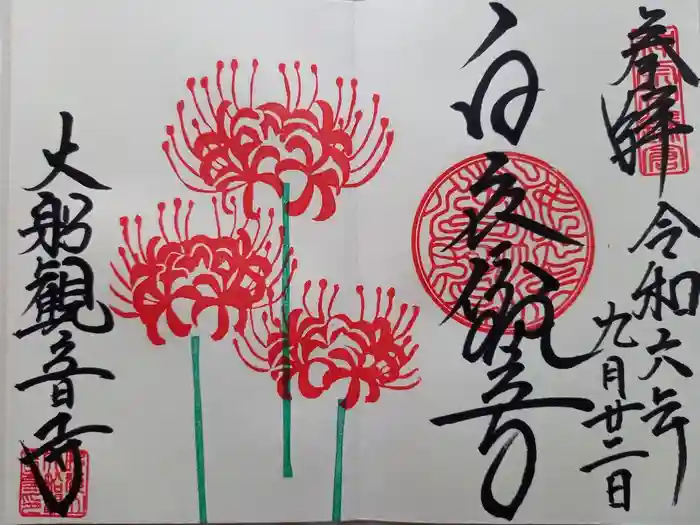 奉拝
令和六年
九月廿二日
白衣観音
大船観音寺